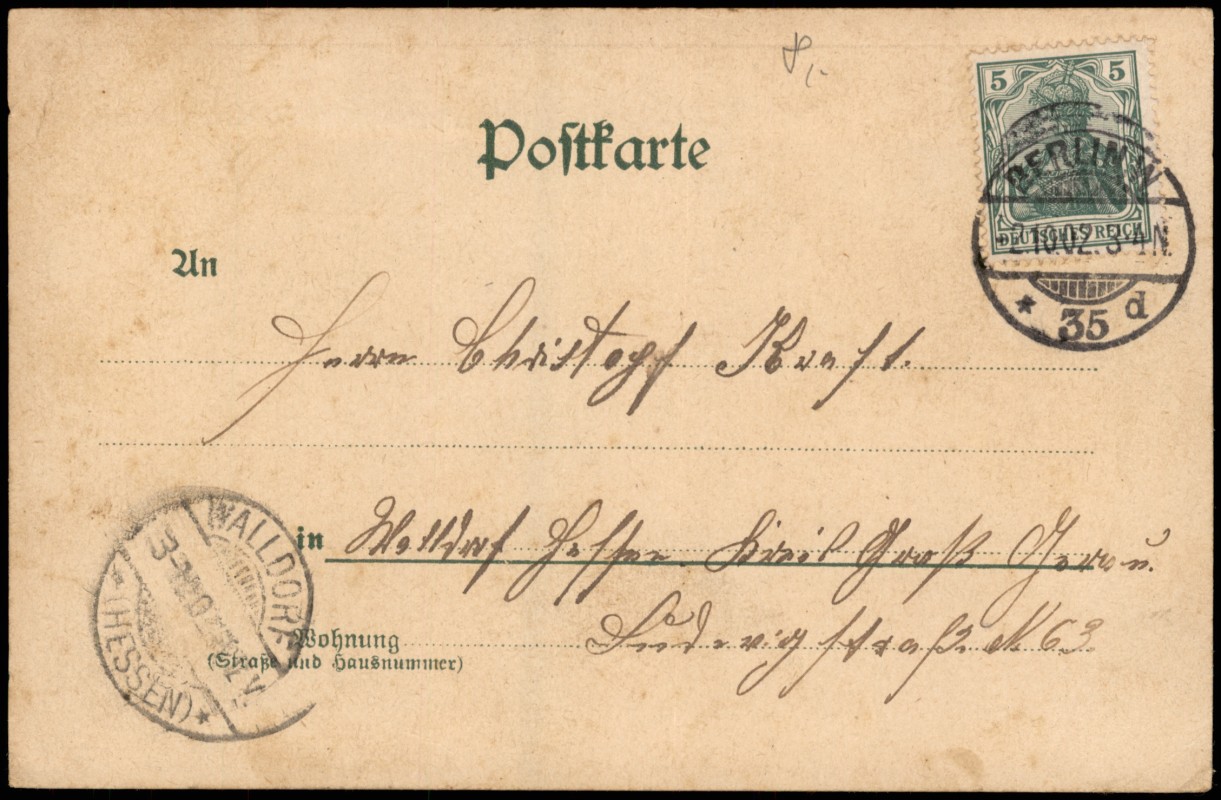 8,-
5 5
DEUTSCHES REICH
BERLIN W
2.10.02. 3-4 N.
* 35 d
Postkarte
An
Herrn Christoph Kraft.
in Walldorf Hessen Kreis Groß Gerau.
Wohnung
(Straße und Hausnummer)
Ludwigstraße N 63.
WALLDORF
* (HESSEN) *